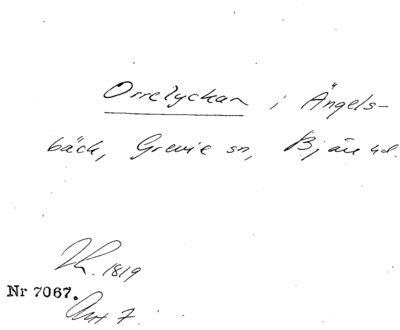 Orrelyckan i Ängels-
bäck, Grevie sn, Bjäre hd.
1819
Nr 7067.
Akt 7.